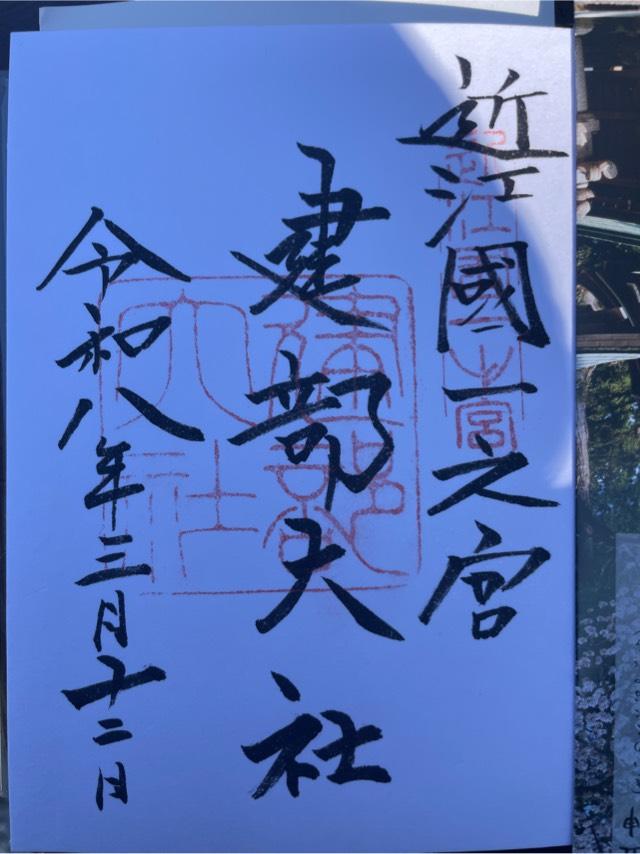 近江國一之宮
建部大社
令和八年三月十二日
近江國一之宮
建部大社
申